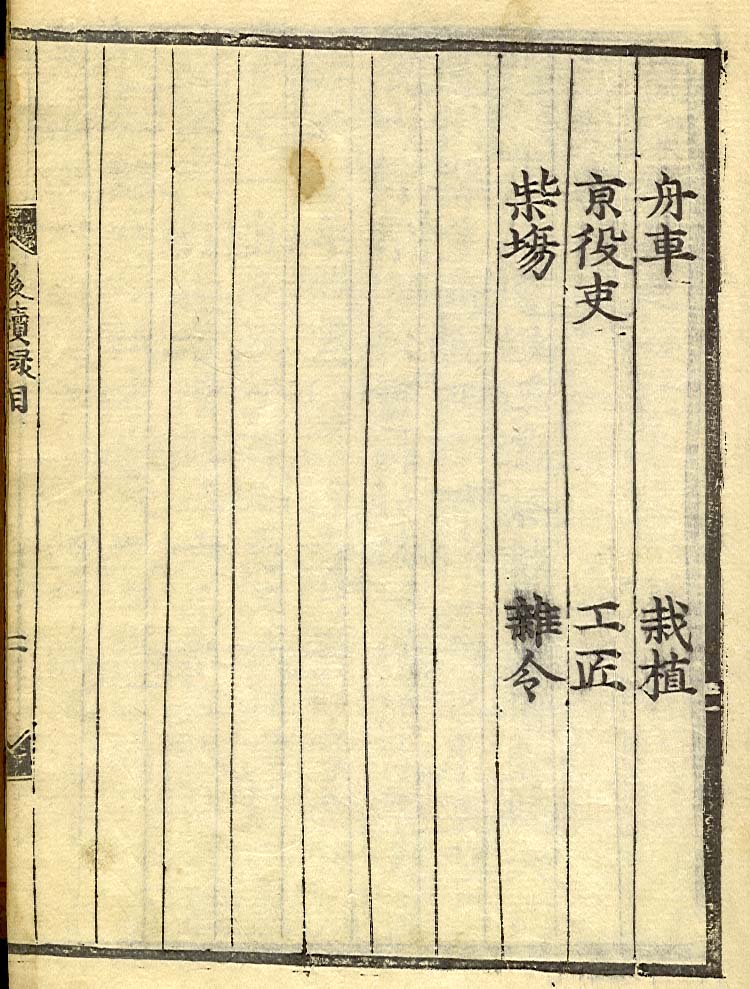 舟車 栽植
京役吏 工匠
柴場 雜令
後續録目
二